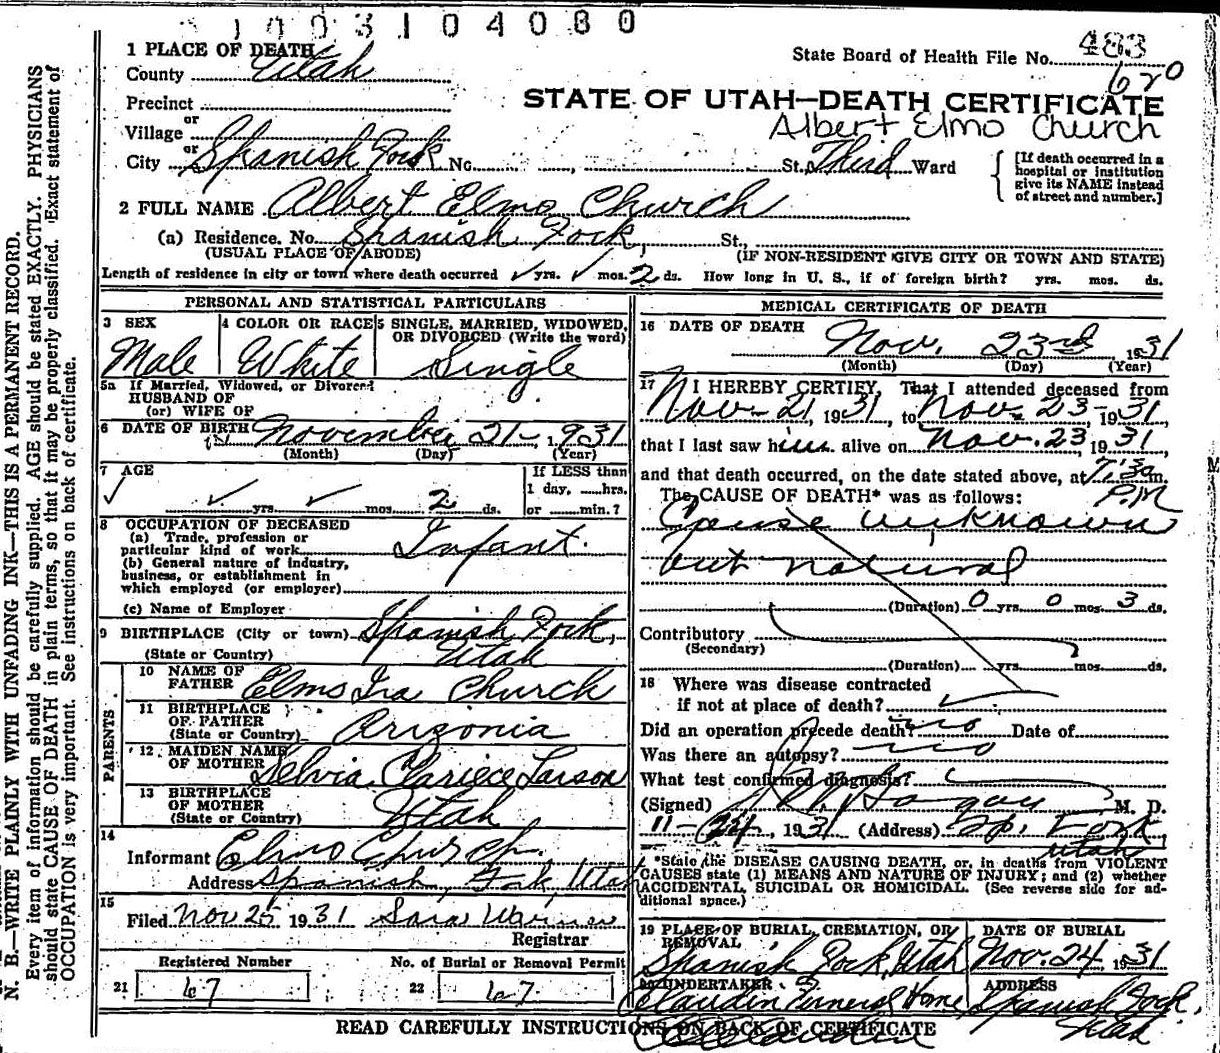 1003104080
1 PLACE OF DEATH
State Board of Health File No. 483
620
County Utah
Precinct
STATE OF UTAH—DEATH CERTIFICATE
Albert Elmo Church
or
Village
or
City Spanish Fork No. St., Third Ward
[If death occurred in a hospital or institution give its NAME instead of street and number.]
2 FULL NAME Albert Elmo Church
(a) Residence. No. Spanish Fork, St.,
(USUAL PLACE OF ABODE) (IF NON-RESIDENT GIVE CITY OR TOWN AND STATE)
Length of residence in city or town where death occurred ✓ yrs. ✓ mos. 2 ds. How long in U. S., if of foreign birth? yrs. mos. ds.
PERSONAL AND STATISTICAL PARTICULARS
3 SEX
Male
4 COLOR OR RACE
White
5 SINGLE, MARRIED, WIDOWED, OR DIVORCED (Write the word)
Single
5a If Married, Widowed, or Divorced
HUSBAND OF
(or) WIFE OF
6 DATE OF BIRTH November 21- 1931
(Month) (Day) (Year)
7 AGE
✓ ✓ yrs. ✓ mos. 2 ds.
If LESS than
1 day, ......hrs.
or ......min.?
8 OCCUPATION OF DECEASED
(a) Trade, profession or
particular kind of work Infant.
(b) General nature of industry,
business, or establishment in
which employed (or employer)
(c) Name of Employer
9 BIRTHPLACE (City or town) Spanish Fork,
(State or Country) Utah
PARENTS
10 NAME OF
FATHER Elmo Ira Church
11 BIRTHPLACE
OF FATHER
(State or Country) Arizonia
12 MAIDEN NAME
OF MOTHER Larson
13 BIRTHPLACE
OF MOTHER
(State or Country) Utah
14
Informant Elmo Church.
Address Spanish, Fork Utah
15
Filed Nov 25 1931
Registrar
Registered Number
21 67
No. of Burial or Removal Permit
22 67
MEDICAL CERTIFICATE OF DEATH
16 DATE OF DEATH
Nov. 23rd, 1931
(Month) (Day) (Year)
17 I HEREBY CERTIFY, That I attended deceased from
Nov- 21, 1931, to Nov- 23- 1931
that I last saw him alive on Nov. 23, 1931,
and that death occurred, on the date stated above, at m.
P.M
The CAUSE OF DEATH* was as follows:
Cause unknown
but natural
(Duration) 0 yrs. 0 mos. 3 ds.
Contributory
(Secondary)
(Duration) yrs. mos. ds.
18 Where was disease contracted
if not at place of death?
Did an operation precede death? no Date of
Was there an autopsy? no
What test confirmed diagnosis?
(Signed) M. D.
11-24, 1931 (Address) Sp. Fork,
Utah
*State the DISEASE CAUSING DEATH, or, in deaths from VIOLENT
CAUSES state (1) MEANS AND NATURE OF INJURY; and (2) whether
ACCIDENTAL, SUICIDAL OR HOMICIDAL. (See reverse side for ad-
ditional space.)
19 PLACE OF BURIAL, CREMATION, OR
REMOVAL
Spanish Fork, Utah
DATE OF BURIAL
Nov. 24, 1931
20 UNDERTAKER
Claudin Funeral Home
ADDRESS
Spanish Fork,
Utah
READ CAREFULLY INSTRUCTIONS ON BACK OF CERTIFICATE
N. B.—WRITE PLAINLY WITH UNFADING INK—THIS IS A PERMANENT RECORD.
Every item of information should be carefully supplied. AGE should be stated EXACTLY. PHYSICIANS
should state CAUSE OF DEATH in plain terms, so that it may be properly classified. Exact statement of
OCCUPATION is very important. See instructions on back of certificate.